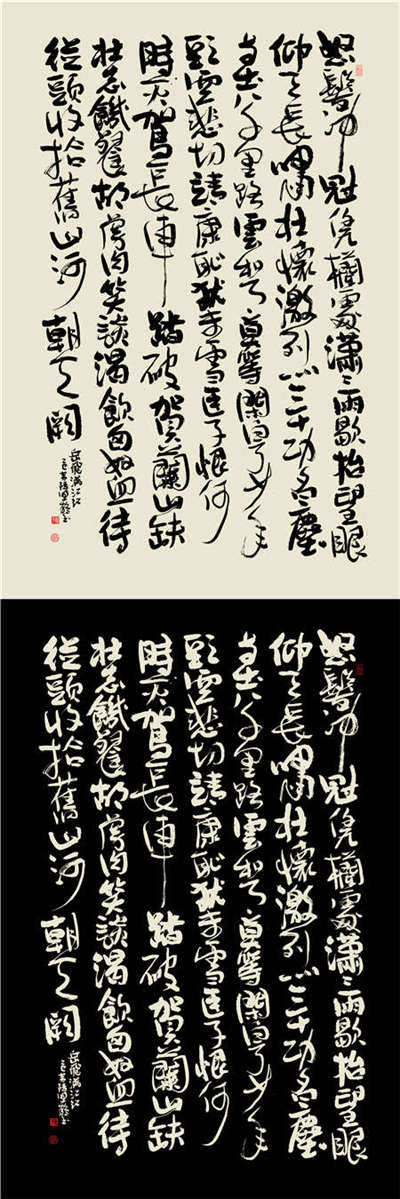 怒髮冲冠凭欄處瀟瀟雨歇抬望眼
仰天長嘯壯懷激烈三十功名塵
与土八千里路雲和月莫等閑白了少年
頭空悲切靖康恥猶未雪臣子恨何
時灭駕長車踏破賀蘭山缺
壯志饑餐胡虜肉笑談渴飲匈奴血待
從頭收拾舊山河朝天闕
岳飛滿江紅
怒髮冲冠凭欄處瀟瀟雨歇抬望眼
仰天長嘯壯懷激烈三十功名塵
与土八千里路雲和月莫等閑白了少年
頭空悲切靖康恥猶未雪臣子恨何
時灭駕長車踏破賀蘭山缺
壯志饑餐胡虜肉笑談渴飲匈奴血待
從頭收拾舊山河朝天闕
岳飛滿江紅